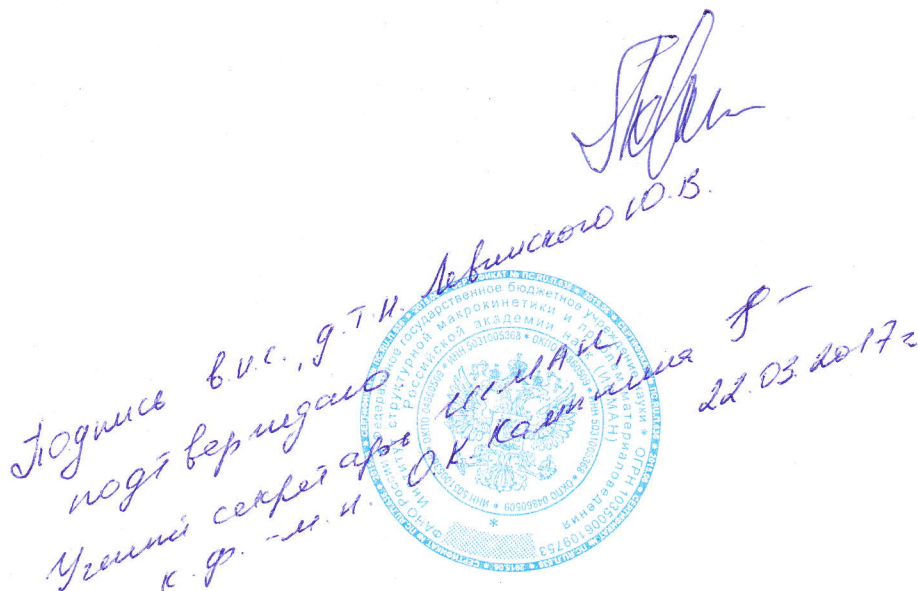 Подпись в.н.с., д.т.н. Левинского Ю.В.
подтверждаю
Ученый секретарь ИСМАН,
к.ф.-м.н. О.К. Камынина
22.03.2017г
ФАНО России * Федеральное государственное бюджетное учреждение науки * ОГРН 1035006109753
Институт структурной макрокинетики и проблем материаловедения
Российской академии наук (ИСМАН)
* ОКПО 04860509 * ИНН 5031005368